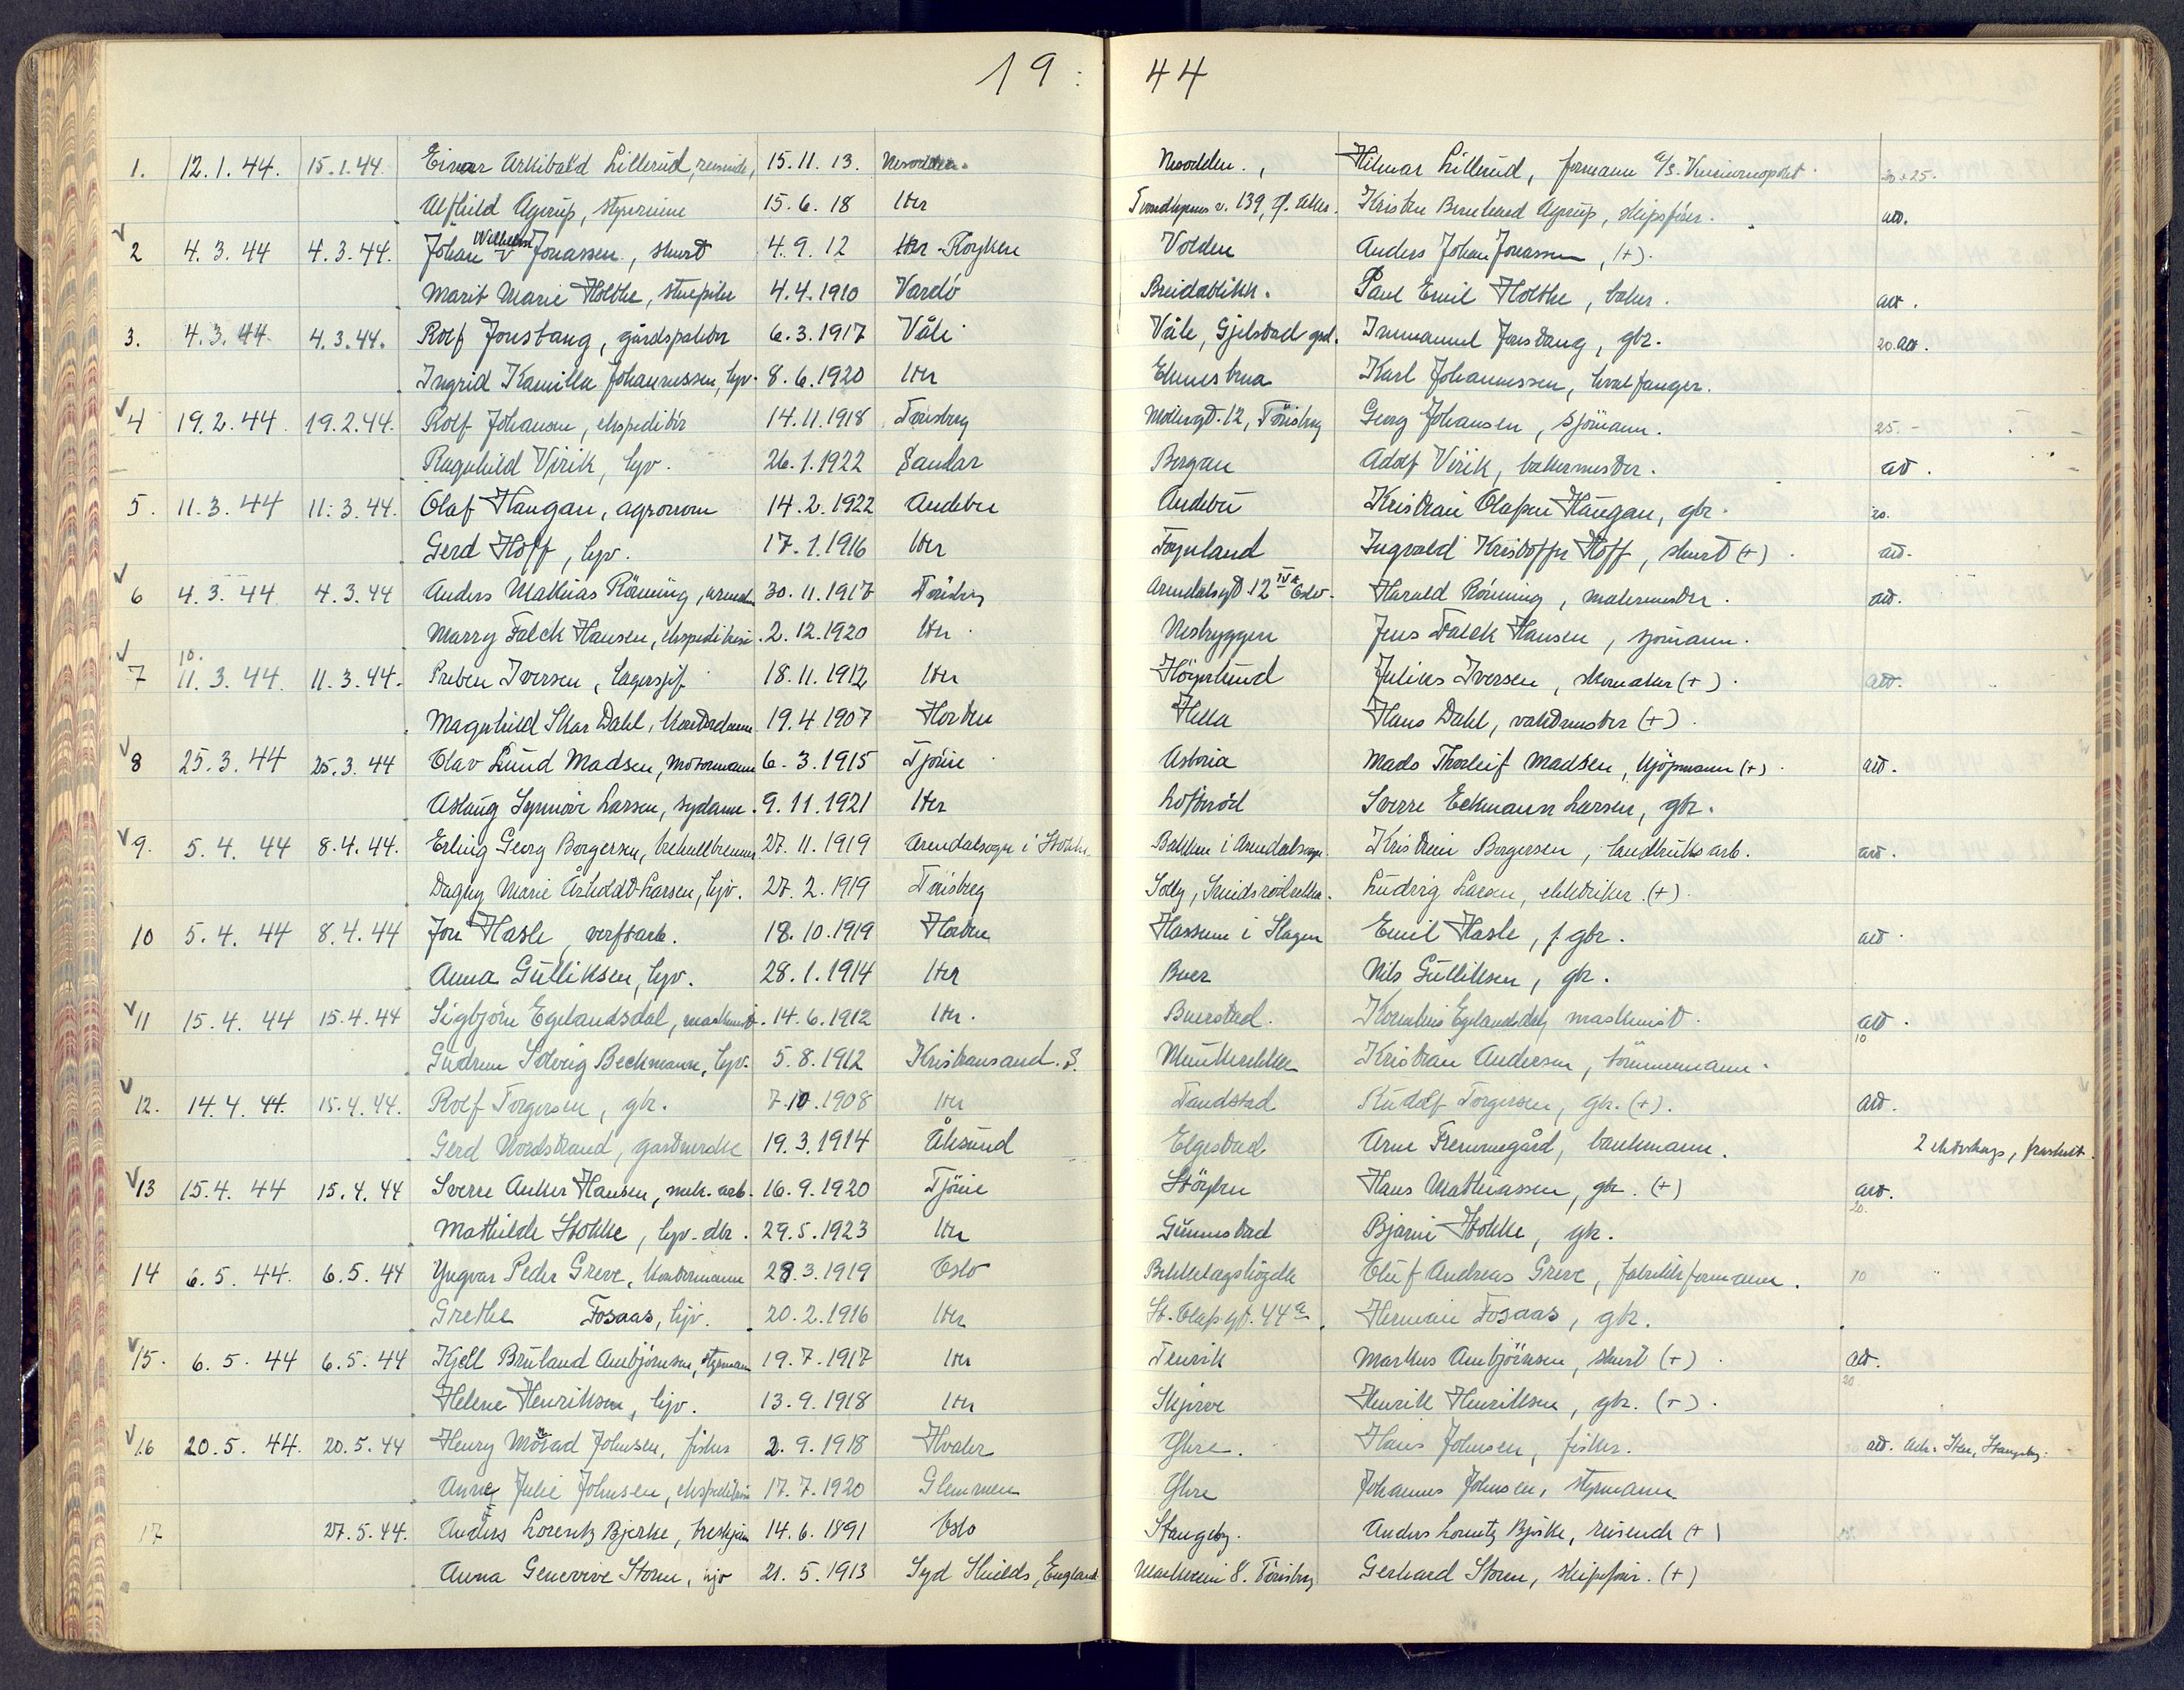 19:44
1. 12.1.44. 15.1.44. Einar Arkibald Lillerud, reisende, 15.11.13. Nesodden. Nesodden., Hilmar Lillerud, formann A/S.
Alfhild Agerup, 15.6.18 Her v. 139, Kristen Bernhard Agerup, skipsfører. att.
2 4.3.44 4.3.44. Johan Wilhelm Jonassen, skurt 4.9.12 Her - Røyken Volden Anders Johan Jonassen, (+).
Marit Marie Holthe, 4.4.1910 Vardö Breidablikk. Paul Emil Holthe, baker. att.
3. 4.3.44. 4.3.44. Rolf Jonsbang, 6.3.1917 Våle Våle, Gjelstad grd. Immanuel Jonsbang, gbr. 20. att.
Ingrid Kamilla Johannessen, hjv. 8.6.1920 Her Elnesbrua Karl Johannessen, hvalfanger.
4 19.2.44. 19.2.44. Rolf Johansen, ekspeditör 14.11.1918 Tönsberg Möllergt. 12, Tönsberg Georg Johansen, sjömann. 25.-
Ragnhild Virik, hjv. 26.1.1922 Sandar Bergan Adolf Virik, bakermester. att.
5. 11.3.44 11.3.44. Olaf Haugan, agronom 14.2.1922 Andebu Andebu Kristian Olafsen Haugan, gbr. 20.
Gerd Hoff, hjv. 17.1.1916 Her Föynland Ingvald Kristoffer Hoff, skurt (+). att.
6 4.3.44 4.3.44 Anders Mathias Rönning, 30.11.1917 Tönsberg Arendalsgt 12 IV Oslo. Harald Rönning, malermester. att.
Marry Falck Hansen, ekspeditrise. 2.12.1920 Her. Nesbryggen Jens Falck Hansen, sjömann.
7 10. 11.3.44. 11.3.44. Preben Iversen, lagersjef 18.11.1912 Her Högelund Julius Iversen, skomaker (+). att.
Magnhild Skar Dahl, kontordame 19.4.1907 Horten Hella Hans Dahl, vaktmester (+).
8 25.3.44 25.3.44 Olav Lund Madsen, motormann 6.3.1915 Tjöme Astoria Mads Thorleif Madsen, kjöpmann (+). att.
Aslaug Synnöve Larsen, sydame. 9.11.1921 Her Sverre Eckmann Larsen, gbr.
9. 5.4.44 8.4.44. Erling Georg Borgersen, 27.11.1919 Arendalsogn i Stokke Bakken i Arendalsogn. Kristian Borgersen, landbruksarb. att.
Dagny Marie Årholdt-Larsen, hjv. 27.2.1919 Tönsberg Solly, Smidsrödvekka. Ludvig Larsen, elektriker. (+).
10 5.4.44 8.4.44 Jon Hasle, verftsarb. 18.10.1919 Horten Hassum i Slagen Emil Hasle, f. gbr. att.
Anna Gulliksen, hjv. 28.1.1914 Her Buer Nils Gulliksen, gbr.
11 15.4.44 15.4.44 Sigbjörn Egelandsdal, maskinist. 14.6.1912 Her. Buerstad. Kornelius Egelandsdal, maskinist. att. 10
Gudrun Solveig Beckmann, hjv. 5.8.1912 Kristiansand. S. Munkerekka Kristian Andersen, tömmermann.
12. 14.4.44. 15.4.44. Rolf Torgersen, gbr. 7.10.1908 Her Tandstad Rudolf Torgersen, gbr. (+). att.
Gerd Nordstrand, 19.3.1914 Ålesund Elgestad Arne Fremmegård, bankmann. 2
13 15.4.44 15.4.44 Sverre Anker Hansen, mek. arb. 16.9.1920 Tjöme Hans Mathiassen, gbr. (+) att. 20.
Mathilde Stokke, hjv. dtr. 29.5.1923 Her Gunnestad Bjarne Stokke, gbr.
14 6.5.44. 6.5.44 Yngvar Peder Greve, kontormann 28.3.1919 Oslo Bekkelagshögda Oluf Andreas Greve, fabrikkformann. 10
Grethe Fosaas, hjv. 20.2.1916 Her St. Olafsgt. 44a Herman Fosaas, gbr.
15. 6.5.44 6.5.44 Kjell Bruland Ambjörnsen, styrmann 19.7.1917 Her Tenvik Markus Ambjörnsen, skurt (+). att. 20
Helene Henriksen, hjv. 13.9.1918 Her Skjerve Henrik Henriksen, gbr. (+).
16 20.5.44. 20.5.44 Henry Johnsen, fisker 2.9.1918 Hvaler Glore. Hans Johnsen, fisker. att.
Anne Julie Johnsen, 17.7.1920 Glemmen Glore Johannes Johnsen, styrmann.
17 27.5.44. Anders Lorentz Bjerke, 14.6.1891 Oslo Stangeby. Anders Lorentz Bjerke, reisende (+)
Anna Genevive Storm, hjv 21.5.1913 Syd Shields, England 8. Tönsberg Gerhard Storm, skipsförer. (+)